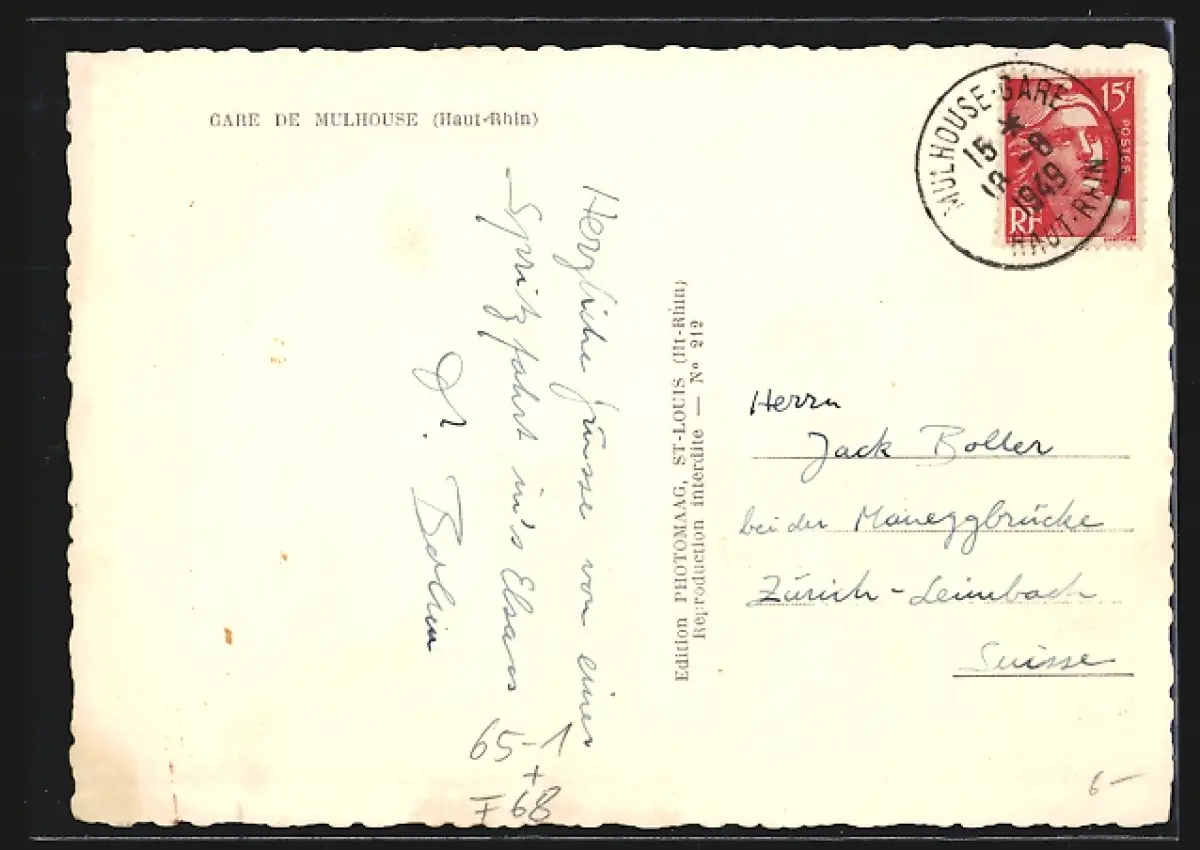 GARE DE MULHOUSE (Haut-Rhin)
Herzliche Grüsse von einer
Spritzfahrt in's Elsass
65-1
+
F 68
Edition PHOTOMAAG, ST-LOUIS (Ht-Rhin)
Reproduction interdite — N° 212
MULHOUSE-GARE
15 * 18
18 -8
1949
HAUT-RHIN
15F
POSTES
RF
Herrn
Jack Boller
bei der Maneggbrücke
Zürich - Leimbach
Suisse
6-